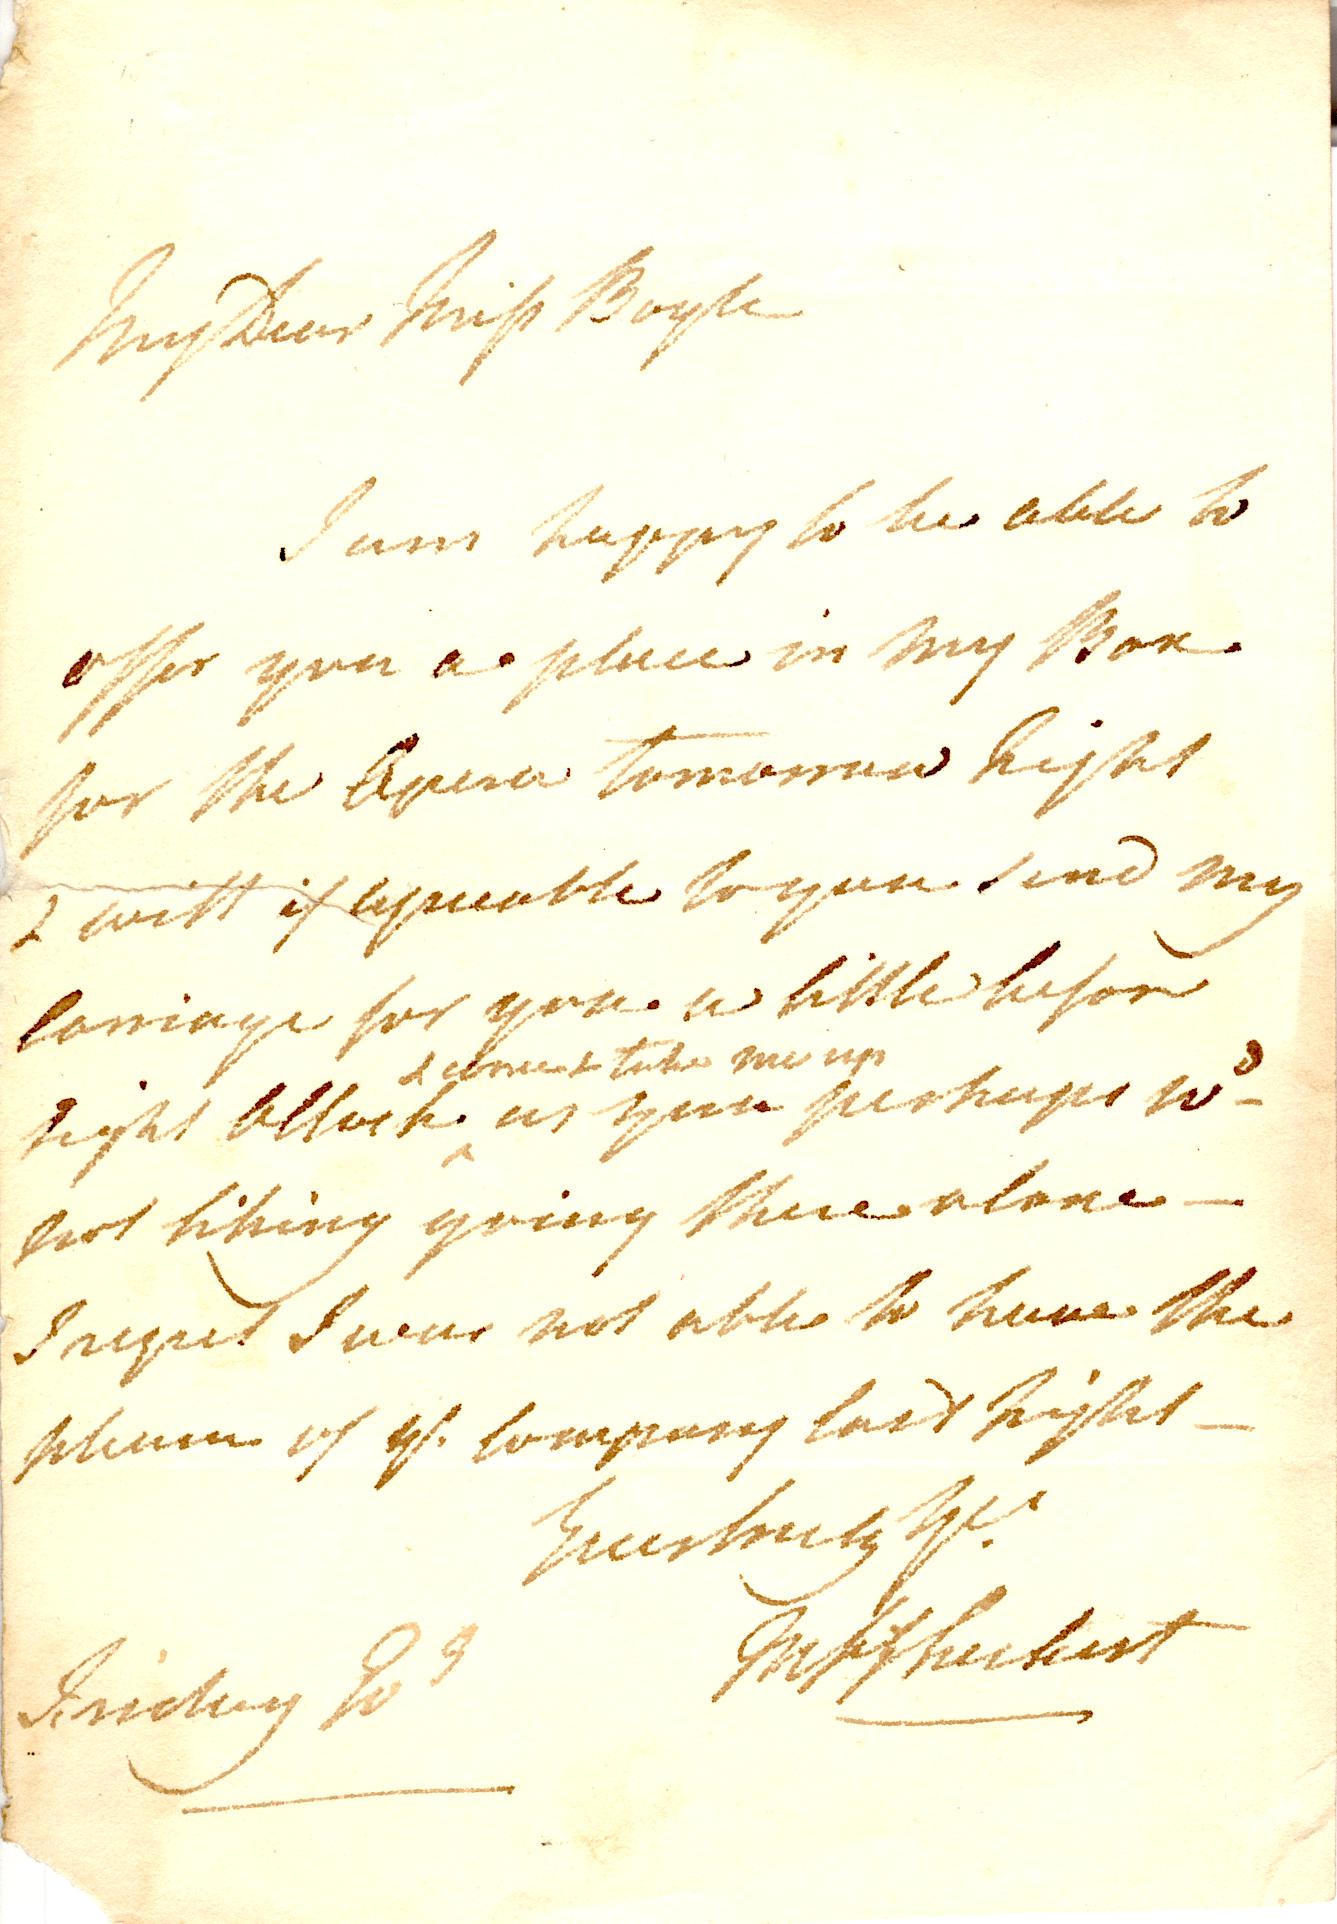 My Dear Miss Boyle
I am happy to be able to
offer you a place in my Box
for the Opera tomorrow Night
& will if agreeable to you send my
Carriage for you a little before
& come & take me up
Eight OClock as you perhaps wd
not liking going there alone —
I regret I was not able to have the
pleasure of yr. Company last Night —
Yrs.
Fitzherbert
Friday